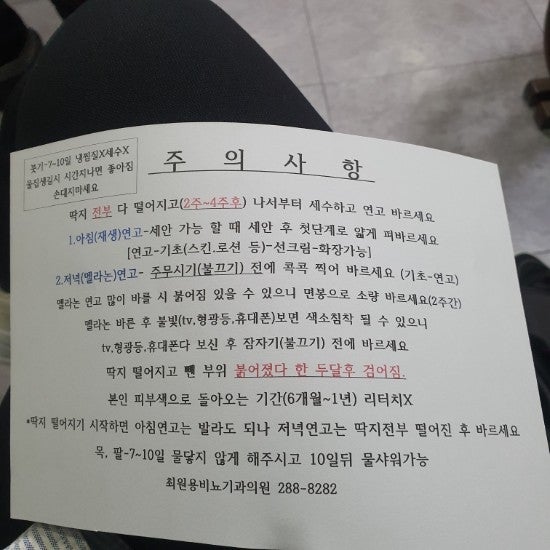 붓기-7~10일 냉찜질X세수X
물집생길시 시간지나면 좋아짐
손대지마세요
주 의 사 항
딱지 전부 다 떨어지고(2주~4주후) 나서부터 세수하고 연고 바르세요
1.아침(재생)연고-세안 가능 할 때 세안 후 첫단계로 얇게 펴바르세요
[연고-기초(스킨.로션 등)-선크림-화장가능]
2.저녁(멜라논)연고- 주무시기(불끄기) 전에 콕콕 찍어 바르세요 (기초-연고)
멜라논 연고 많이 바를 시 붉어짐 있을 수 있으니 면봉으로 소량 바르세요(2주간)
멜라논 바른 후 불빛(tv,형광등,휴대폰)보면 색소침착 될 수 있으니
tv,형광등,휴대폰다 보신 후 잠자기(불끄기) 전에 바르세요
딱지 떨어지고 뺀 부위 붉어졌다 한 두달후 검어짐.
본인 피부색으로 돌아오는 기간(6개월~1년) 리터치X
*딱지 떨어지기 시작하면 아침연고는 발라도 되나 저녁연고는 딱지전부 떨어진 후 바르세요
목, 팔-7~10일 물닿지 않게 해주시고 10일뒤 물샤워가능
최원용비뇨기과의원 288-8282